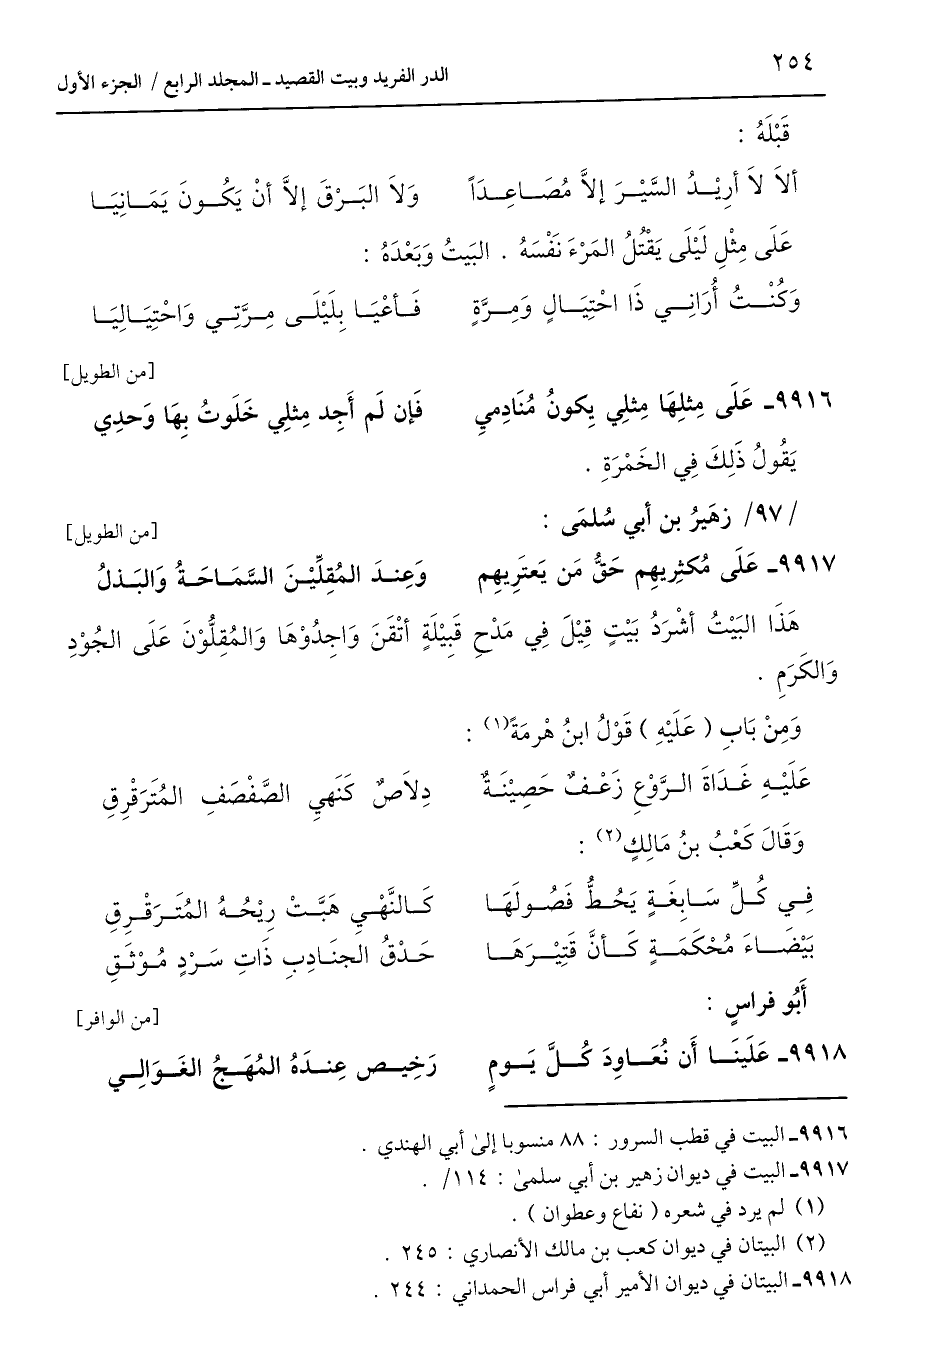 ٢٥٤
الدر الفريد وبيت القصيد ـ المجلد الرابع / الجزء الأول
قَبْلَهُ :
ألاَ لاَ أرِيْـدُ السَّيْـرَ إلاَّ مُصَـاعِـدَاً وَلاَ البَـرْقَ إلاَّ أنْ يَكُـونَ يَمَـانِيَـا
عَلَى مِثْلِ لَيْلَى يَقْتُلُ المَرْءَ نَفْسَهُ . البَيتُ وَبَعْدَهُ :
وَكُنْـتُ أُرَانِـي ذَا احْتِيَـالٍ وَمِـرَّةٍ فَـأعْيَـا بِلَيْلَـى مِـرَّتِـي وَاحْتِيَـالِيَـا
[من الطويل]
٩٩١٦ـ عَلَى مِثلِهَا مِثلِي يِكونُ مُنَادِمِي فَإن لَم أَجِد مِثلِي خَلَوتُ بِهَا وَحدِي
يَقُولُ ذَلِكَ فِي الخَمْرَةِ .
/٩٧/ زهَيرُ بن أبي سُلمَى :
[من الطويل]
٩٩١٧ـ عَلَى مُكثِرِيهِم حَقُّ مَن يَعتَرِيهِم وَعِندَ المُقلِّيْنَ السَّمَاحَةُ وَالبَذلُ
هَذَا البَيْتُ أشْرَدُ بَيْتٍ قِيْلَ فِي مَدْحِ قَبِيْلَةٍ أتْقَنَ وَاجِدُوْهَا وَالمُقِلُّوْنَ عَلَى الجُوْدِ
وَالكَرَمِ .
وَمِنْ بَابِ ( عَلَيْهِ ) قَوْلُ ابنُ هْرمَةً(١) :
عَلَيْـهِ غَـدَاةَ الـرَّوْعِ زَعْـفٌ حَصِيْنَـةٌ دِلاَصٌ كَنَهيِ الصَّفْصَفِ المُتَرَقْرِقِ
وَقَالَ كَعْبُ بنُ مَالِكٍ(٢) :
فِـي كُـلِّ سَـابِغَـةٍ يَحُـطُّ فَضُـولَهَـا كَـالنَّهْـيِ هَبَّـتْ رِيْحُـهُ المُتَـرَقْـرِقِ
بَيْضَـاءَ مُحْكَمَـةٍ كَـأنَّ قَتِيْـرَهَـا حَـدْقُ الجنَـادِبِ ذَاتِ سَـرْدٍ مُـوْثَـقِ
أَبُو فراسٍ :
[من الوافر]
٩٩١٨ـ عَلَينَـا أَن نُعَـاودَ كُـلَّ يَـومٍ رَخِيـص عِنـدَهُ المُهَـجُ الغَـوَالِـي
٩٩١٦ـ البيت في قطب السرور : ٨٨ منسوبا إلىٰ أبي الهندي .
٩٩١٧ـ البيت في ديوان زهير بن أبي سلمىٰ : ١١٤/ .
(١) لم يرد في شعره ( نفاع وعطوان ) .
(٢) البيتان في ديوان كعب بن مالك الأنصاري : ٢٤٥ .
٩٩١٨ـ البيتان في ديوان الأمير أبي فراس الحمداني : ٢٤٤ .